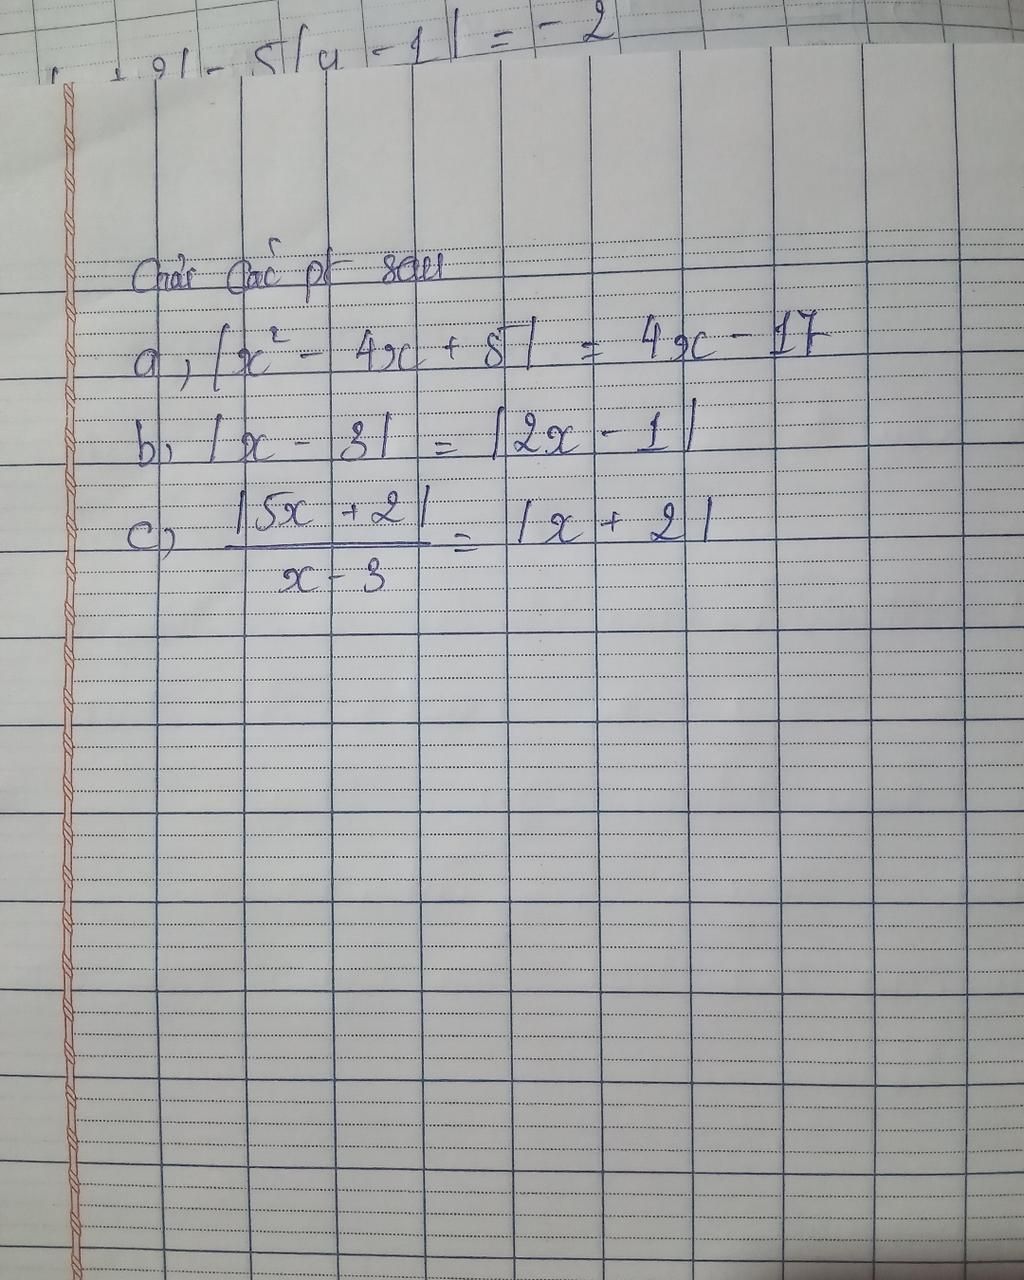 + 2| - 5|y - 1| = - 2
Giải các pt sau
a, |x² - 4x + 5| = 4x - 17
b, |x - 3| = |2x - 1|
c, |5x + 2| / x - 3 = |x + 2|